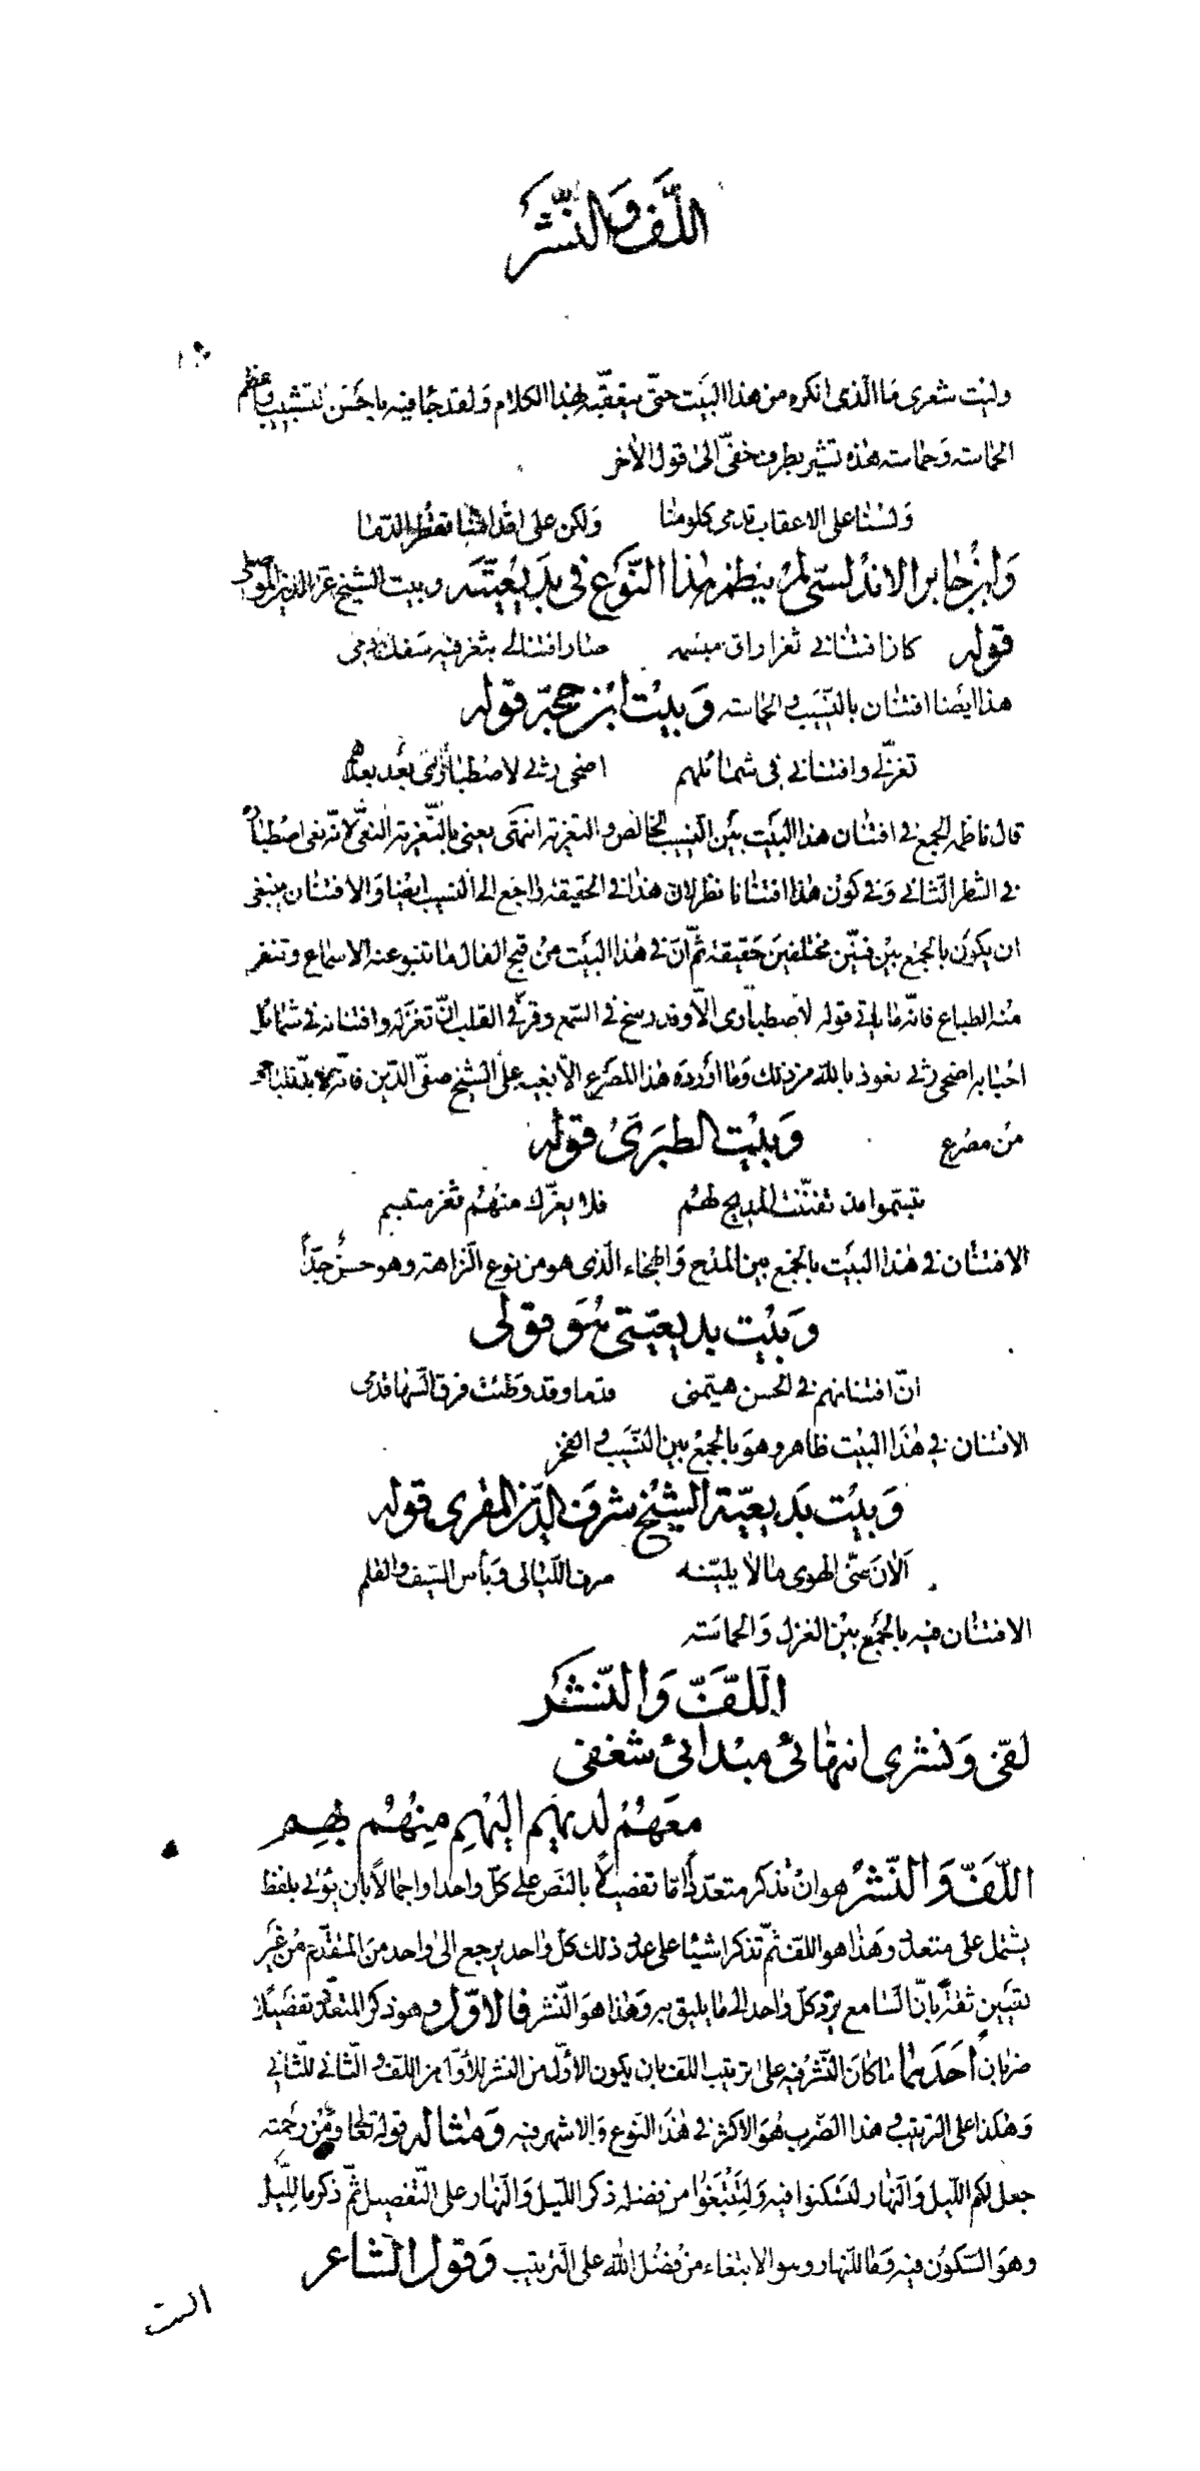 اللَّف وَالنَّشر
وليت شعرى مَا الَّذى انكره من هذا البَيت حتّى يتعقّبه بهذا الكلام وَلقد جَا فيه باحَسَن تشبيب واعظم
الحَماسته وَحماسته هذه تشير بطرف خفىّ الىٰ قول الاٰخر
وَلسْنا على الاعقاب تدمى كلومنا ولكن على اقدامنا تقطر الدّما
وَابنُ جابر الاندلسىّ لمْ ينظم هٰذا النَّوع فى بَديعيّته وبيت الشيخ عز الدين الموصلى
قوله كان افتنانى بثغر راق مبسمه صار افتنانى بثغر فيه سفك دمى
هذا ايضا افتنان بالنّسَيب والحماسته وَبيْت ابْن حجّة قوله
تغزّلى وافتنانى فى شمائلهم اضحى رثى لاصْطبارى بَعْد بعدهم
قال ناظمه الجمع فى افتنان هذا البَيت بيْن النسيب الخالص والتعزية انتهى يعنى بالتَّعزية النفى لانّه نعى اصْطباره
فى الشطر الثانى وَفى كون هٰذا افتنانا نظر لان هذا فى الحقيقة راجَع الى النسيب ايضا وَالافتنان ينبغى
ان يكون بالجمْع بيْن فنيّن مختلفين حَقيقة ثمّ انَّ فى هٰذا البَيت منْ قبح الفال ما تنبو عنه الاسْماع وتنفر
منْه الطباع فانّه ما ياتى قوله لاصطبارى الاّ وقد رسخ فى السّمع وقرّ فى القلب انّ تغزله وافتنانه فى شمائل
احْبابه اضحى رثى نعوذ بالله من ذلك وَما اورده هٰذا المصرع الاّ بغيه على الشيخ صفىّ الدّين فانّه
من مصْرع وَبيْت الطبَرىّ قوله
تبسّموا مذ تفنّنت المديح لهُم فلا يغرّك منْهُمْ ثغر مبتسم
الافتنان فى هٰذا البيَت بالجَمْع بين المدْح وَالهجَاء الّذى هو من نوع النّزاهة وهو حسنٌ جدّاً
وَبيْت بديعيّتى هُوَ قولى
انّ افتنانهم فى الحسن هيّمنى قدما وقد وطئت فرق السّها قدمى
الافتنان فى هٰذا البيْت ظاهر وهوَ بالجمْع بين النّسَيب والفخر
وَبيْت بَديعيّة الشيْخ شرف الدّين المقرى قوله
اَلانَ منّى الهوى ما لا يليّنه صرف اللّيالى وَبأس السّيف والقلم
الافتنان فيه بالجمَع بيْن الغزل وَالحماسَته
اَللّفّ وَالنّشر
لفّى وَنشرى انتهائى مبْدائى شغفى
معَهُمْ لديهِم اليْهِم منِهُمْ بهِم
اللّفّ وَالنّشرُ هو انْ تذكر متعدّداً امّا تفصيلاً بالنصّ على كلّ واحد او اجمالاً بان يؤتى بلفظ
يشْتمل على متعدد وَهٰذا هو اللفّ ثمّ تذكر اشيْاء على عدد ذلك كلّ واحد يرجع الىٰ واحد من المتقدّم من غَير
تعَيين ثقةً بانّ السّامع يردّ كلّ واحد الى ما يليق به وَهٰذا هوَ النّشر فالاوّل وهو ذكر المتعدّد تفصَيلاً
ضربان احَدهما ما كان النّشر فيه على ترتيب اللف بان يكون الأوّل من النشر للأوّل من اللفّ والثّانى للثّانى
وَهٰكذا على الترتيب وهذا الضّرب هُوَ الاكثر فى هٰذا النّوع وَالاشهر فيه وَمثاله قوله تعالى وَمنْ رحمَته
جعل لكم اللّيل وَالنّهار لتسْكنوا فيه وَلِتَبْتغُوا من فضله ذكر اللّيل وَالنّهار على التّفصيل ثمّ ذكر ما للّيل
وهوَ السّكون فيه وَما للنّهار وهو الابتغاء منْ فضْل الله على التّرتيب وَقول الشاعر
الست